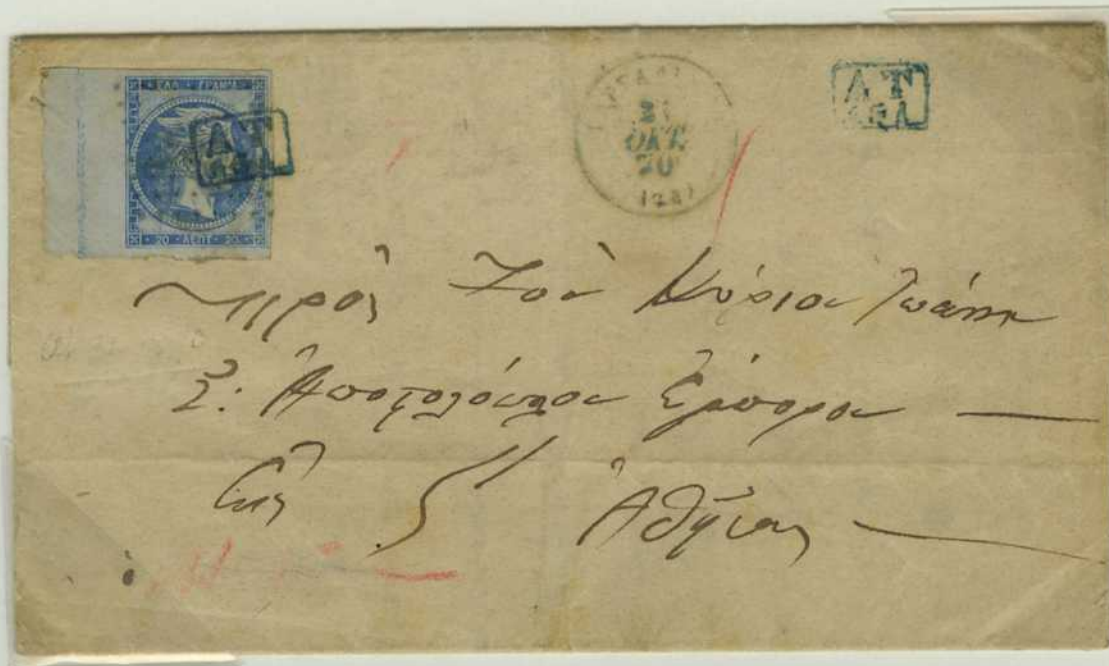 ΕΛΛ ΓΡΑΜΜ
20 ΛΕΠΤ 20
ΟΚΤ.
70
(74)
Πρὸς Τὸν Κύριον Ἰωάνην
Σ. Ἀποστολόπουλον Ἔμπορον
Εἰς Ἀθήνας